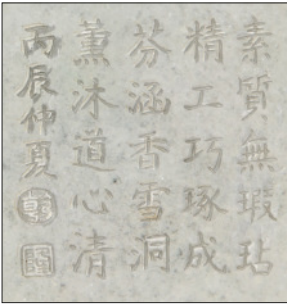 素質無瑕玷
精工巧琢成
芬涵香雪洞
薰沐道心清
丙辰仲夏
乾
隆